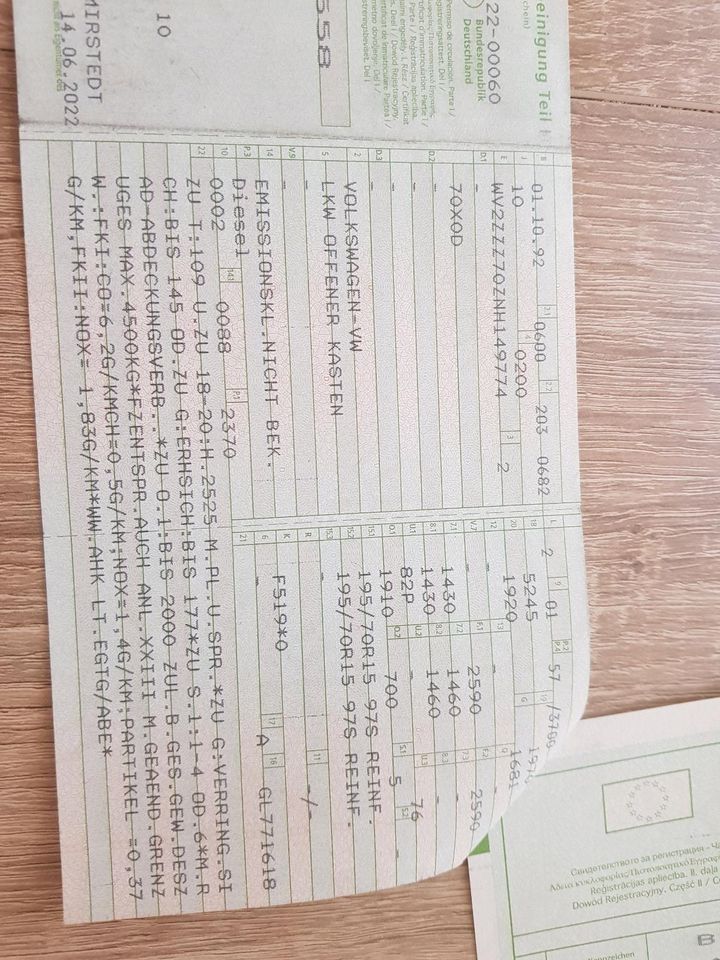 einigung Teil I
chein)
22-00060
Bundesrepublik
Deutschland
558
10
MIRSTEDT
14.06.2022
B 01.10.92 2.1 0600 2.2 203 0682
J 10 4 0200
E WV2ZZZ70ZNH149774 3 2
D.1 -
D.2 70X0D
-
-
D.3 -
2 VOLKSWAGEN-VW
5 LKW OFFENER KASTEN
-
V.9 -
14 EMISSIONSKL.NICHT BEK.
P.3 Diesel
10 0002 14.1 0088 P.1 2370
L 2 9 01 P.2 P.4 57 /3700
18 5245 19
20 1920 G 1681
12 - 13
V.7 - F.1 2590 F.2 2590
7.1 1430 7.2 1460 7.3 -
8.1 1430 8.2 1460 8.3 -
U.1 82P U.2 - U.3 76
O.1 1910 O.2 700 S.1 5 S.2 -
15.1 195/70R15 97S REINF.
15.2 195/70R15 97S REINF.
15.3 -
R - 11 -/-
K F519*0
6 - 17 A 16 GL771618
21
22 ZU T:109 U.ZU 18-20:H.2525 M.PL.U.SPR.*ZU G:VERRING.SI
CH:BIS 145 OD.ZU G:ERHSICH:BIS 177*ZU S.1:1-4 OD.6*M.R
AD-ABDECKUNGSVERB..*ZU O.1:BIS 2000 ZUL.B.GES.GEW.DESZ
UGES MAX.4500KG*FZENTSPR.AUCH ANL.XXIII M.GEAEND.GRENZ
W.:FKI:CO=6,2G/KMCH=0,5G/KM;NOX=1,4G/KM;PARTIKEL =0,37
G/KM,FKII:NOX= 1,83G/KM*WW.AHK LT.EGTG/ABE*
Свидетелство за регистрация - Ча
Reģistrācijas apliecība. II. daļa
Dowód Rejestracyjny. Część II / C
nnzeichen
B